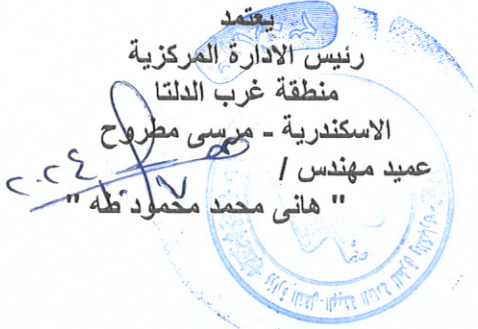 يعتمد
رئيس الادارة المركزية
منطقة غرب الدلتا
الاسكندرية - مرسى مطروح
عميد مهندس /
" هانى محمد محمود طه "
٢٠٢٤